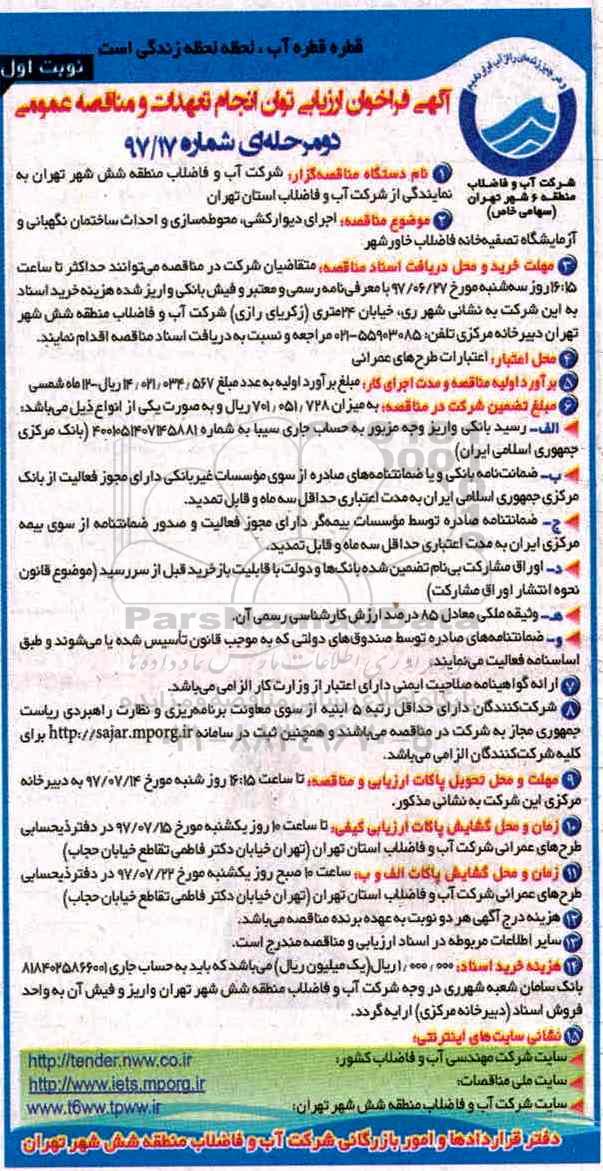 قطره قطره آب ، لحظه لحظه زندگی است
نوبت اول
آگهی فراخوان ارزیابی توان انجام تعهدات و مناقصه عمومی
دومرحله‌ای شماره ۹۷/۱۷
شرکت آب و فاضلاب
منطقه ۶ شهر تهران
(سهامی خاص)
۱ نام دستگاه مناقصه‌گزار: شرکت آب و فاضلاب منطقه شش شهر تهران به
نمایندگی از شرکت آب و فاضلاب استان تهران
۲ موضوع مناقصه: اجرای دیوارکشی، محوطه‌سازی و احداث ساختمان نگهبانی و
آزمایشگاه تصفیه‌خانه فاضلاب خاورشهر
۳ مهلت خرید و محل دریافت اسناد مناقصه: متقاضیان شرکت در مناقصه می‌توانند حداکثر تا ساعت
۱۶:۱۵ روز سه‌شنبه مورخ ۹۷/۰۶/۲۷ با معرفی‌نامه رسمی و معتبر و فیش بانکی واریز شده هزینه خرید اسناد
به این شرکت به نشانی شهر ری، خیابان ۲۴متری (زکریای رازی) شرکت آب و فاضلاب منطقه شش شهر
تهران دبیرخانه مرکزی تلفن: ۵۵۹۰۳۰۸۵-۰۲۱ مراجعه و نسبت به دریافت اسناد مناقصه اقدام نمایند.
۴ محل اعتبار: اعتبارات طرح‌های عمرانی
۵ برآورد اولیه مناقصه و مدت اجرای کار: مبلغ برآورد اولیه به عدد مبلغ ۱۴,۰۲۱,۰۳۴,۵۶۷ ریال-۱۲ ماه شمسی
۶ مبلغ تضمین شرکت در مناقصه: به میزان ۷۰۱,۰۵۱,۷۲۸ ریال و به صورت یکی از انواع ذیل می‌باشد:
الف- رسید بانکی واریز وجه مزبور به حساب جاری سیبا به شماره ۴۰۰۱۰۵۱۴۰۷۱۴۵۸۸۱ (بانک مرکزی
جمهوری اسلامی ایران)
ب- ضمانت‌نامه بانکی و یا ضمانتنامه‌های صادره از سوی مؤسسات غیربانکی دارای مجوز فعالیت از بانک
مرکزی جمهوری اسلامی ایران به مدت اعتباری حداقل سه ماه و قابل تمدید.
ج- ضمانتنامه صادره توسط مؤسسات بیمه‌گر دارای مجوز فعالیت و صدور ضمانتنامه از سوی بیمه
مرکزی ایران به مدت اعتباری حداقل سه ماه و قابل تمدید.
د- اوراق مشارکت بی‌نام تضمین شده بانک‌ها و دولت با قابلیت بازخرید قبل از سررسید (موضوع قانون
نحوه انتشار اوراق مشارکت)
هـ- وثیقه ملکی معادل ۸۵ درصد ارزش کارشناسی رسمی آن.
و- ضمانتنامه‌های صادره توسط صندوق‌های دولتی که به موجب قانون تأسیس شده یا می‌شوند و طبق
اساسنامه فعالیت می‌نمایند.
۷ ارائه گواهینامه صلاحیت ایمنی دارای اعتبار از وزارت کار الزامی می‌باشد.
۸ شرکت‌کنندگان دارای حداقل رتبه ۵ ابنیه از سوی معاونت برنامه‌ریزی و نظارت راهبردی ریاست
جمهوری مجاز به شرکت در مناقصه می‌باشند و همچنین ثبت در سامانه http://sajar.mporg.ir برای
کلیه شرکت‌کنندگان الزامی می‌باشد.
۹ مهلت و محل تحویل پاکات ارزیابی و مناقصه: تا ساعت ۱۶:۱۵ روز شنبه مورخ ۹۷/۰۷/۱۴ به دبیرخانه
مرکزی این شرکت به نشانی مذکور.
۱۰ زمان و محل گشایش پاکات ارزیابی کیفی: تا ساعت ۱۰ روز یکشنبه مورخ ۹۷/۰۷/۱۵ در دفتر ذیحسابی
طرح‌های عمرانی شرکت آب و فاضلاب استان تهران (تهران خیابان دکتر فاطمی تقاطع خیابان حجاب)
۱۱ زمان و محل گشایش پاکات الف و ب: ساعت ۱۰ صبح روز یکشنبه مورخ ۹۷/۰۷/۲۲ در دفتر ذیحسابی
طرح‌های عمرانی شرکت آب و فاضلاب استان تهران (تهران خیابان دکتر فاطمی تقاطع خیابان حجاب)
۱۲ هزینه درج آگهی هر دو نوبت به عهده برنده مناقصه می‌باشد.
۱۳ سایر اطلاعات مربوطه در اسناد ارزیابی و مناقصه مندرج است.
۱۴ هزینه خرید اسناد: ۱,۰۰۰,۰۰۰ ریال (یک میلیون ریال) می‌باشد که باید به حساب جاری ۸۱۸۴۰۲۵۸۶۶۰۰۱
بانک سامان شعبه شهرری در وجه شرکت آب و فاضلاب منطقه شش شهر تهران واریز و فیش آن به واحد
فروش اسناد (دبیرخانه مرکزی) ارایه گردد.
۱۵ نشانی سایت‌های اینترنتی:
سایت شرکت مهندسی آب و فاضلاب کشور: http://tender.nww.co.ir
سایت ملی مناقصات: http://www.iets.mporg.ir
سایت شرکت آب و فاضلاب منطقه شش شهر تهران: www.t6ww.tpww.ir
دفتر قراردادها و امور بازرگانی شرکت آب و فاضلاب منطقه شش شهر تهران